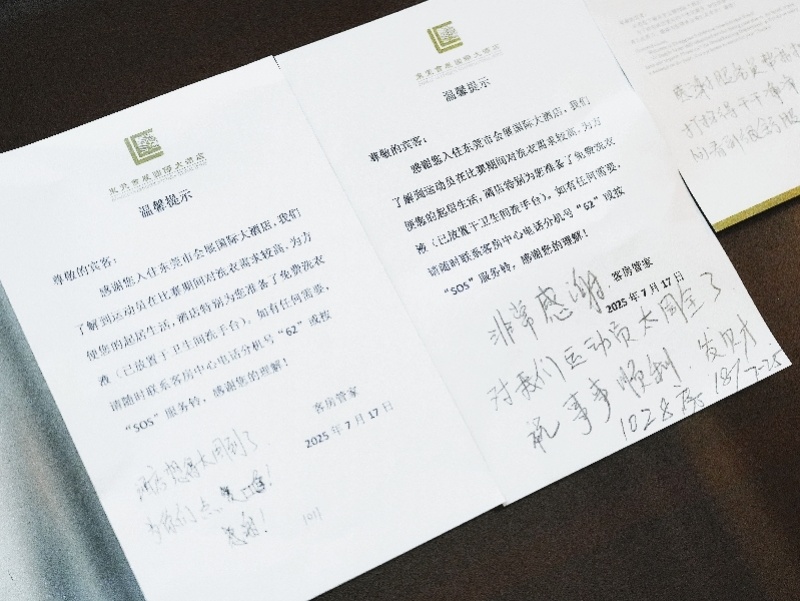 东莞会展国际大酒店
温馨提示
尊敬的宾客:
感谢您入住东莞市会展国际大酒店,我们
了解到运动员在比赛期间对洗衣需求较高,为方
便您的起居生活,酒店特别为您准备了免费洗衣
液(已放置于卫生间洗手台)。如有任何需要,
请随时联系客房中心电话分机号“62”或按
“SOS”服务铃,感谢您的理解!
客房管家
2025年7月17日
酒店想得太周到了
为你们点
101
东莞会展国际大酒店
温馨提示
尊敬的宾客:
感谢您入住东莞市会展国际大酒店,我们
了解到运动员在比赛期间对洗衣需求较高,为方
便您的起居生活,酒店特别为您准备了免费洗衣
液(已放置于卫生间洗手台)。如有任何需要,
请随时联系客房中心电话分机号“62”或按
“SOS”服务铃,感谢您的理解!
客房管家
2025年7月17日
非常感谢
对我们运动员太周全了
祝事事顺利 发财
1028房 18/7-25
打扫得干干净净